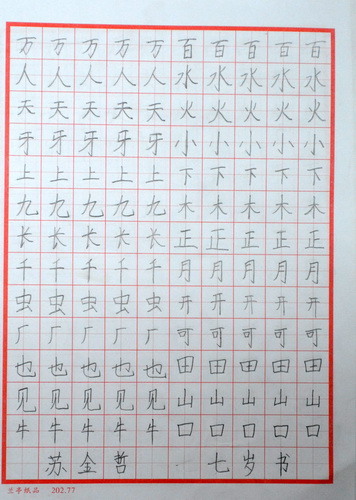 万万万万万百百百百百
人人人人人水水水水水
天天天天天火火火火火
牙牙牙牙牙小小小小小
上上上上上下下下下下
九九九九九木木木木木
长长长长长正正正正正
千千千千千月月月月月
虫虫虫虫虫开开开开开
厂厂厂厂厂可可可可可
也也也也也田田田田田
见见见见见山山山山山
牛牛牛牛牛口口口口口
苏金哲 七岁书
兰亭纸品 202.77